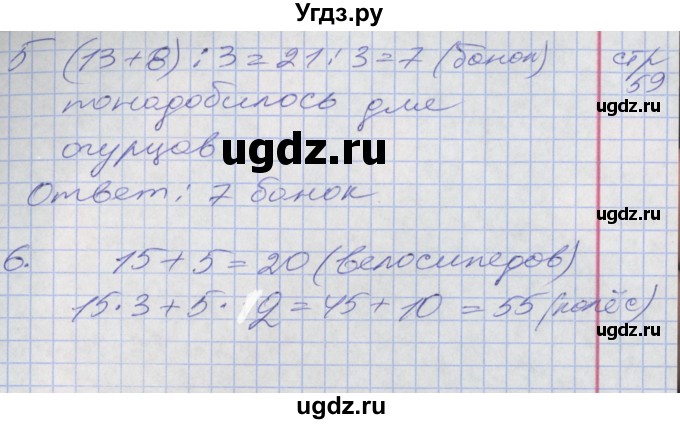 Угдз.ру
5 (13+8) : 3 = 21 : 3 = 7 (банок) стр 59
понадобилось для
огурцов
ugdz.ru
ugdz.ru
Ответ: 7 банок
ugdz.ru
6. 15 + 5 = 20 (велосипедов)
15 · 3 + 5 · 2 = 45 + 10 = 55 (колёс)
ugdz.ru
ugdz.ru